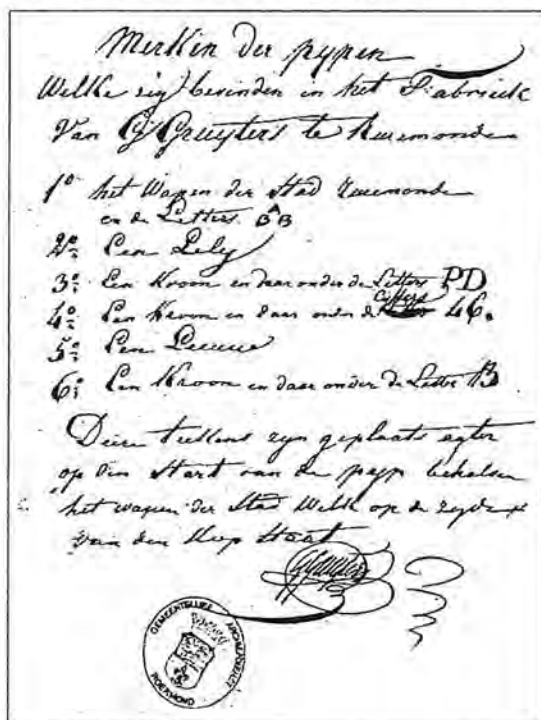 Merkin der pypen
Welke zig bevinden in het Fabrieck
Van G Gruyters te Ruremonde
1º het Wapen der Stad Ruremonde
en de Letters B A B
2º: Een Lely
3º: Een Kroon en daar onder de Letters PD
4º: Een Kroon en daar onder de Ciffers 46.
5º: Een Leeuw
6º: Een Kroon en daar onder de Letter B
Deese teekens zyn geplaats egter
op den Start van de pyp behalven
het wapen der Stad Welk op de zyde
van den Kop Staat
GEMEENTELIJKE ARCHIEFDIENST
ROERMOND